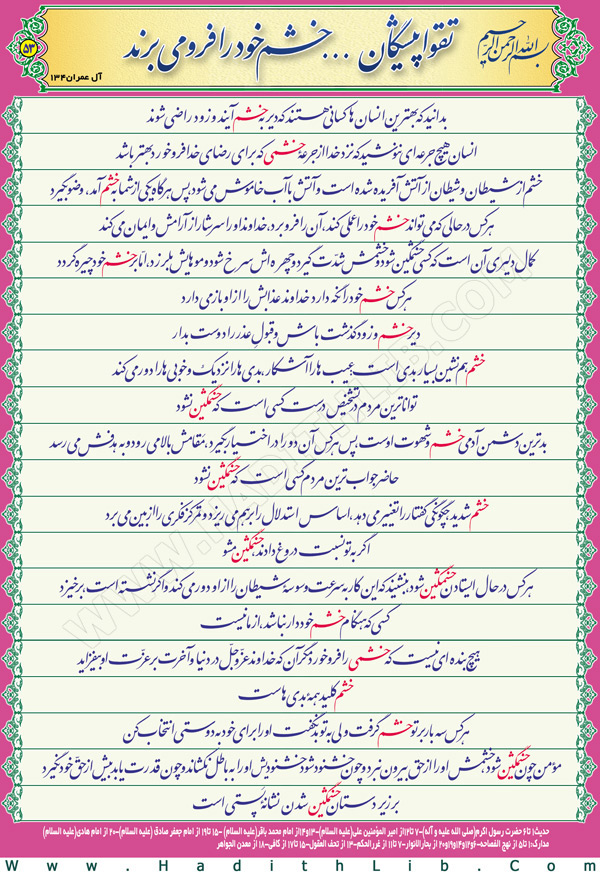 بسم الله الرحمن الرحیم
تقوا پیشگان ... خشم خود را فرو می برند
۵۳
آل عمران۱۳۴
بدانید که بهترین انسان ها کسانی هستند که دیر به خشم آیند و زود راضی شوند
انسان هیچ جرعه ای ننوشید که نزد خدا از جرعۀ خشمی که برای رضای خدا فرو خورد بهتر باشد
خشم از شیطان و شیطان از آتش آفریده شده است و آتش با آب خاموش می شود، پس هرگاه یکی از شما به خشم آمد، وضو بگیرد
هرکس در حالی که می تواند خشم خود را عملی کند، آن را فرو برد، خداوند او را سرشار از آرامش و ایمان می کند
کمال دلیری آن است که کسی خشمگین شود و خشمش شدت گیرد و چهره اش سرخ شود و موهایش بلرزد، اما بر خشم خود چیره گردد
هرکس خشم خود را نگه دارد خداوند عذابش را از او باز می دارد
دیر خشم و زود گذشت باش و قبول عذر را دوست بدار
خشم هم نشین بسیار بدی است: عیب ها را آشکار، بدی ها را نزدیک و خوبی ها را دور می کند
تواناترین مردم در تشخیص درست کسی است که خشمگین نشود
بدترین دشمن آدمی خشم و شهوت اوست پس هرکس آن دو را در اختیار بگیرد، مقامش بالا می رود و به هدفش می رسد
حاضر جواب ترین مردم کسی است که خشمگین نشود
خشم شدید، چگونگی گفتار را تغییر می دهد، اساس استدلال را برهم می ریزد و تمرکز فکری را از بین می برد
اگر به تو نسبت دروغ دادند، خشمگین مشو
هرکس در حال ایستادن خشمگین شود، بنشیند که این کار به سرعت وسوسۀ شیطان را از او دور می کند و اگر نشسته است، برخیزد
کسی که هنگام خشم خوددار نباشد، از ما نیست
هیچ بنده ای نیست که خشمی را فرو خورد مگر آن که خداوند عزّ و جلّ در دنیا و آخرت بر عزّت او بیفزاید
خشم کلید همۀ بدی هاست
هرکس سه بار بر تو خشم گرفت ولی به تو بد نگفت، او را برای خود به دوستی انتخاب کن
مؤمن چون خشمگین شود، خشمش او را از حق بیرون نبرد و چون خشنود شود خشنودیش او را به باطل نکشاند و چون قدرت یابد بیش از حق خود نگیرد
بر زیردستان خشمگین شدن نشانۀ پستی است
حدیث۱ تا۶ حضرت رسول اکرم(صلی الله علیه و آله)-۷ تا۱۲از امیر المؤمنین علی(علیه السلام)-۱۳و۱۴از امام محمد باقر(علیه السلام) -۱۵ تا۱۹ از امام جعفر صادق (علیه السلام)-۲۰ از امام هادی(علیه السلام)
WWW.HADITHLIB.COM
Www.HadithLib.Com